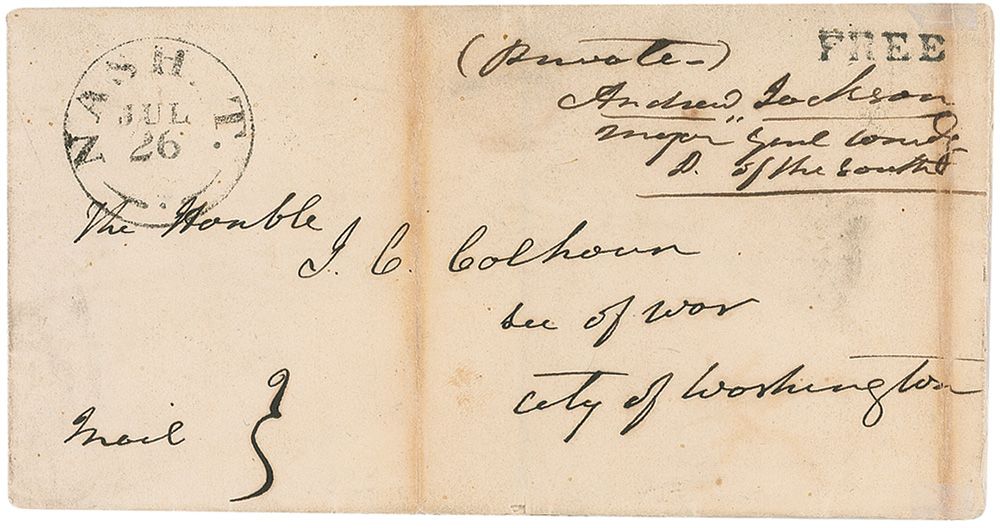 NASH. T.
JUL
26
FREE
(Private—)
Andrew Jackson
Major Genl Comdg
D. of the South
The Honble
J. C. Calhoun
Sec of War
City of Washington
Mail